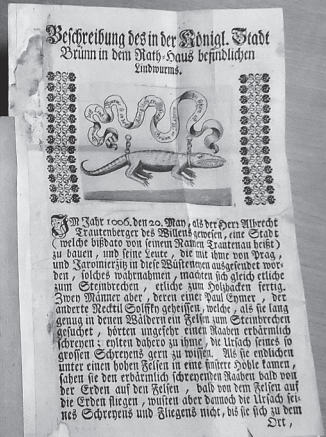 Beschreibung des in der Königl. Stadt
Brünn in dem Rath-Haus befindlichen
Lindwurms.
IM Jahr 1006. den 20. May, als der Herr Albrecht
Trautenberger des Willens gewesen, eine Stadt
(welche bißdato von seinem Namen Trautenau heißt)
zu bauen, und seine Leute, die mit ihme von Prag,
und Jaromierziz in diese Wüsteneyen ausgesendet wor-
den, solches wahrnehmen, machten sich gleich etliche
zum Steinbrechen, etliche zum Holzhacken fertig.
Zwey Männer aber, deren einer Paul Eymer, der
anderte Necktil Solffky geheissen, welche, als sie lang
genug in denen Wäldern ein Felsen zum Steinbrechen
gesuchet, hörten ungefehr einen Raaben erbärmlich
schreyen; eylten dahero zu ihme, die Ursach seines so
grossen Schreyens gern zu wissen. Als sie endlichen
unter einen hohen Felsen in eine finstere Höhle kamen,
sahen sie den erbärmlich schreyenden Raaben bald von
der Erden auf den Felsen, bald von dem Felsen auf
die Erden fliegen, wusten aber dannoch die Ursach sei-
nes Schreyens und Fliegens nicht, bis sie sich zu dem
Ort,